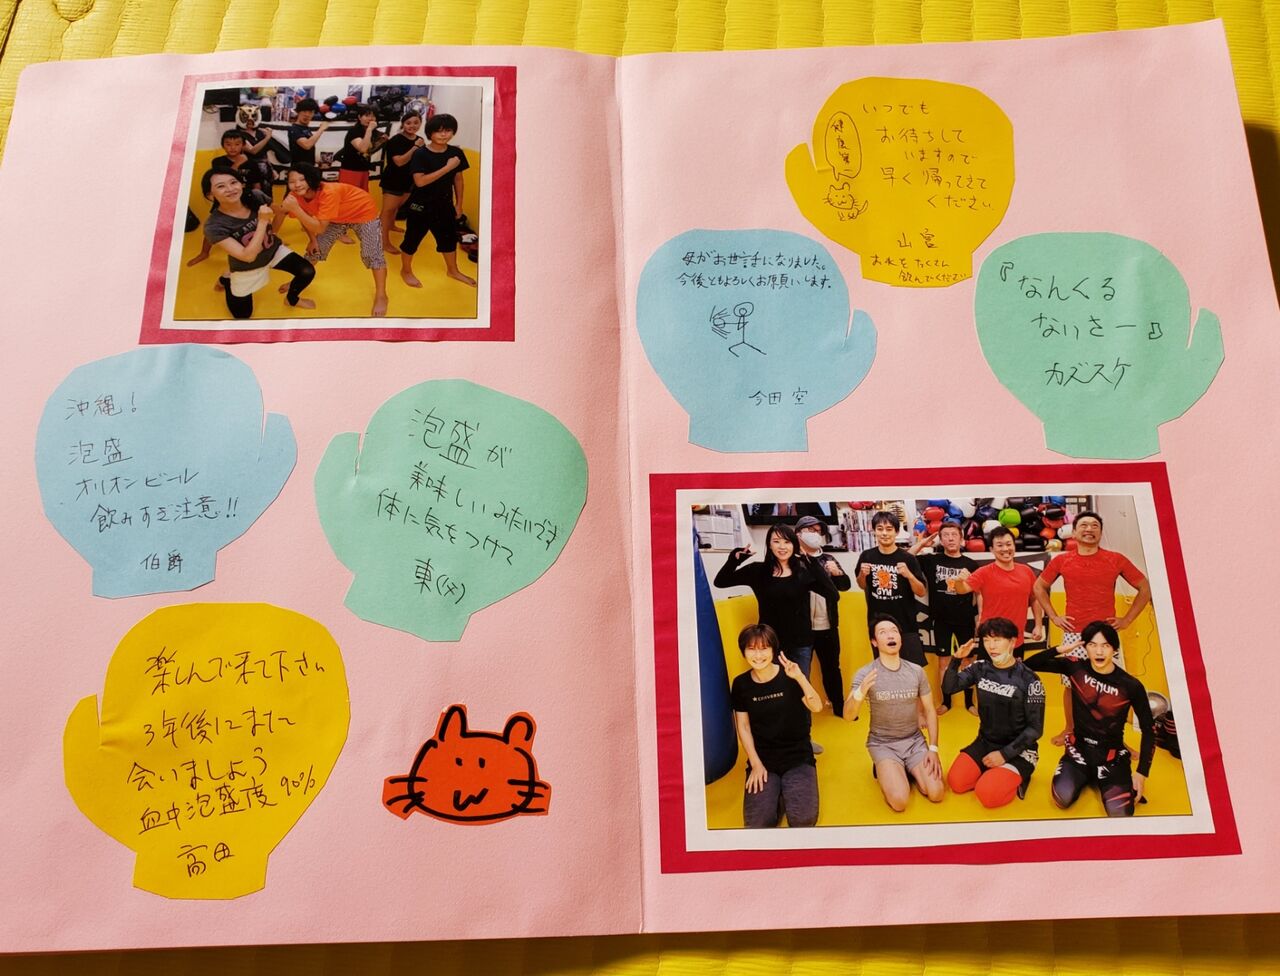 沖縄!
泡盛
オリオンビール
飲みすぎ注意!!
伯爵
泡盛が
美味しいみたいです
体に気をつけて
東(父)
楽しんで来て下さい
3年後にまた
会いましょう
血中泡盛度90%
高田
いつでも
お待ちして
いますので
早く帰ってきて
ください
健康第一
山宮
お水をたくさん
飲んでください
母がお世話になりました。
今後ともよろしくお願いします。
今田 空
『なんくる
ないさー』
カズスケ
SHONAN
SPORTS
GYM
湘南
CONVERSE
VENUM